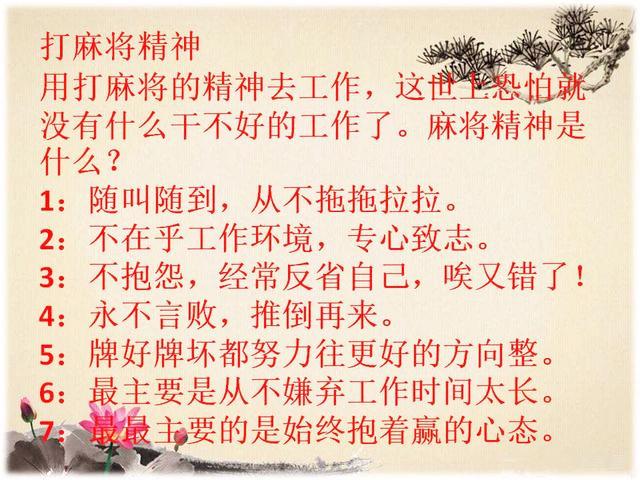 打麻将精神
用打麻将的精神去工作，这世上恐怕就
没有什么干不好的工作了。麻将精神是
什么？
1：随叫随到，从不拖拖拉拉。
2：不在乎工作环境，专心致志。
3：不抱怨，经常反省自己，唉又错了！
4：永不言败，推倒再来。
5：牌好牌坏都努力往更好的方向整。
6：最主要是从不嫌弃工作时间太长。
7：最最主要的是始终抱着赢的心态。